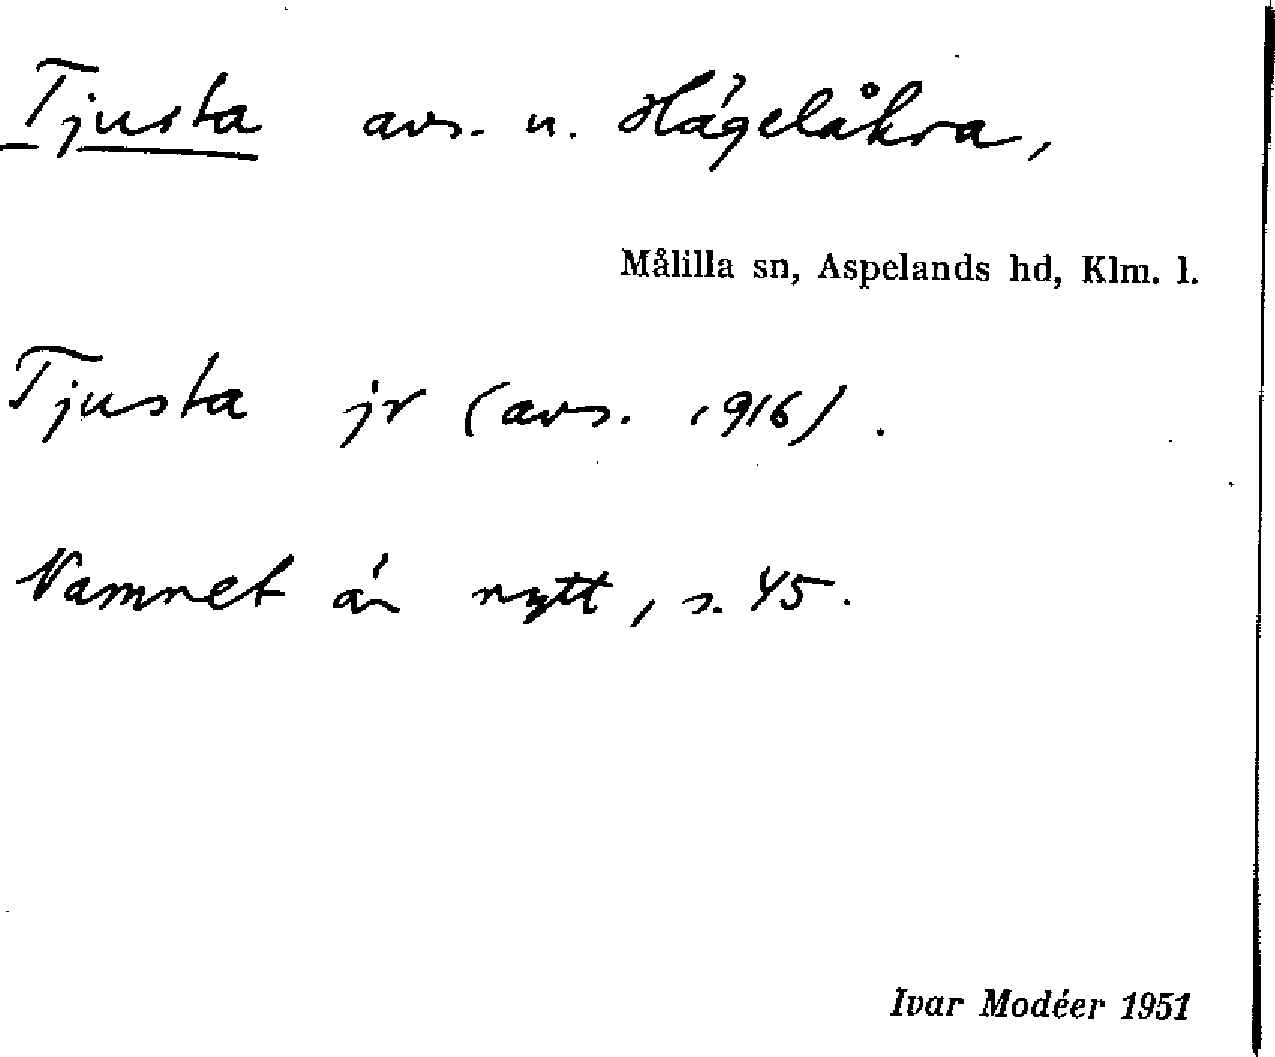 Tjusta avs. u. Hägelåkra,
Målilla sn, Aspelands hd, Klm. l.
Tjusta jr (avs. 1916).
Namnet är nytt, s. 45.
Ivar Modéer 1951